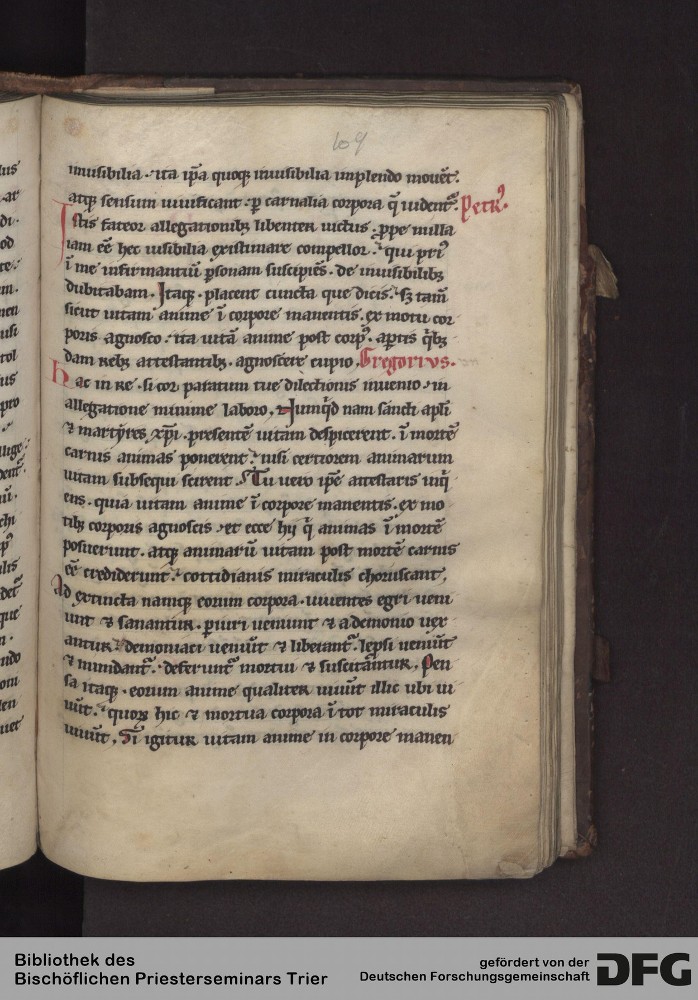 109
inuisibilia· ita ip̄a quoq; inuisibilia implendo mouet̄.
atq; sensum uiuificant· p̄ carnalia corpora q̄ uident̄. Petrꝰ.
Istis fateor allegationib; libenter uictus· ꝓpe nulla
iam ēē hec uisibilia existimare compellor· qui priꝰ
ī me infirmantiū ꝑsonam suscipiēs· de inuisibilib;
dubitabam. Itaq; placent cuncta que dicis· sꝫ tam̄
sicut uitam anime ī corpore manentis· ex motu cor
poris agnosco· ita uitā anime post corpꝰ· aꝑtis q̇b;
dam reb; attestantib;· agnoscere cupio. Gregorivs.
Hac in re· si cor paratum tue dilectionis inuenio· in
allegatione minime laboro. Nunq̇d nam sancti apl̄i
⁊ martẏres xp̄i· presentē uitam despicerent· ī mortē
carnis animas ponerent· nisi certiorem animarum
uitam subsequi scirent. Tu uero ip̄e attestaris inq̇
ens· quia uitam anime ī corpore manentis· ex mo
tib; corporis agnoscis· et ecce hij q̄ animas ī mortē
posuerunt· atq; animarū uitam post mortē carnis
ēē crediderunt· cottidianis miraculis choruscant.
Ad extincta namq; eorum corpora· uiuentes egri ueni
unt ⁊ sanantur· ꝑiuri ueniunt ⁊ a demonio uex
antur· demoniaci ueniūt ⁊ liberant̄· lep̄si ueniūt
⁊ mundant̄· deferunt̄ mortui ⁊ suscitantur. Pen
sa itaq; eorum anime qualiter uiuūt illic ubi ui
uūt· quoꝝ hic ⁊ mortua corpora ī tot miraculis
uiuūt. Si igitur uitam anime in corpore manen
Bibliothek des
Bischöflichen Priesterseminars Trier
gefördert von der
Deutschen Forschungsgemeinschaft
DFG